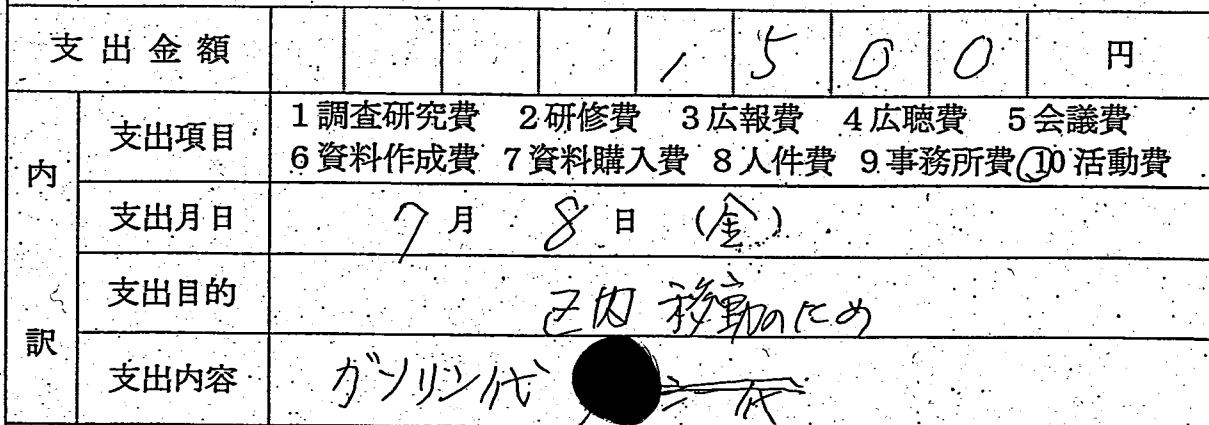 支出金額 1500 円
内訳
支出項目 1調査研究費 2研修費 3広報費 4広聴費 5会議費
6資料作成費 7資料購入費 8人件費 9事務所費 10活動費
支出月日 7月8日(金)
支出目的 区内移動のため
支出内容 ガソリン代 代